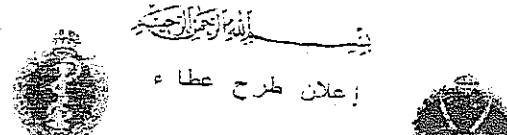 بسم الله الرحمن الرحيم
إعلان طرح عطاء